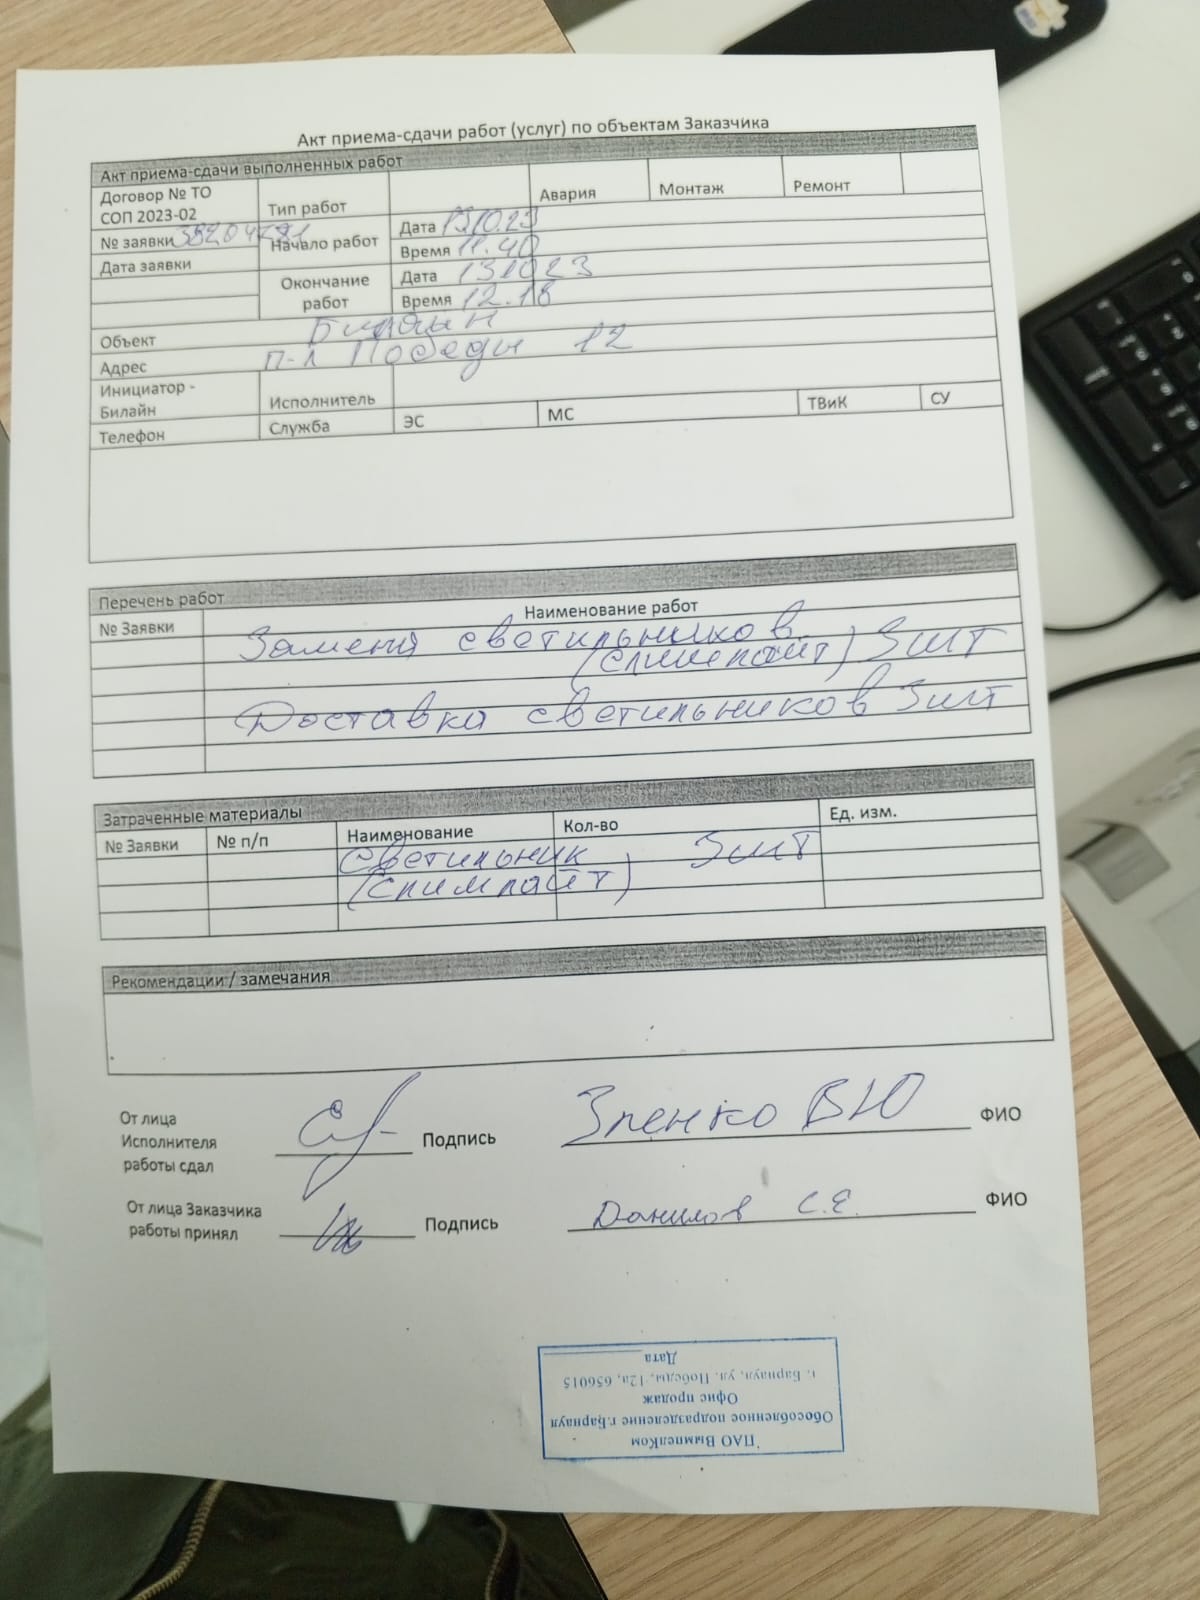 Акт приема-сдачи работ (услуг) по объектам Заказчика
Акт приема-сдачи выполненных работ
Договор № ТО СОП 2023-02 Тип работ Авария Монтаж Ремонт
№ заявки Начало работ Дата 13.10.23
Время 11.40
Дата заявки Окончание работ Дата 131023
Время 12.18
Объект Билайн
Адрес п-л Победы 12
Инициатор - Билайн Исполнитель
Телефон Служба ЭС МС ТВиК СУ
Перечень работ
№ Заявки Наименование работ
Замена светильников
(слимлайт) 3шт
Доставка светильников 3шт
Затраченные материалы
№ Заявки № п/п Наименование Кол-во Ед. изм.
Светильник 3шт
(слимлайт)
Рекомендации / замечания
От лица
Исполнителя
работы сдал Подпись Зленко ВЮ ФИО
От лица Заказчика
работы принял Подпись Данилов С.Е. ФИО
ПАО ВымпелКом
Обособленное подразделение г.Барнаул
Офис продаж
г. Барнаул, ул. Победы, 12а, 656015
Дата